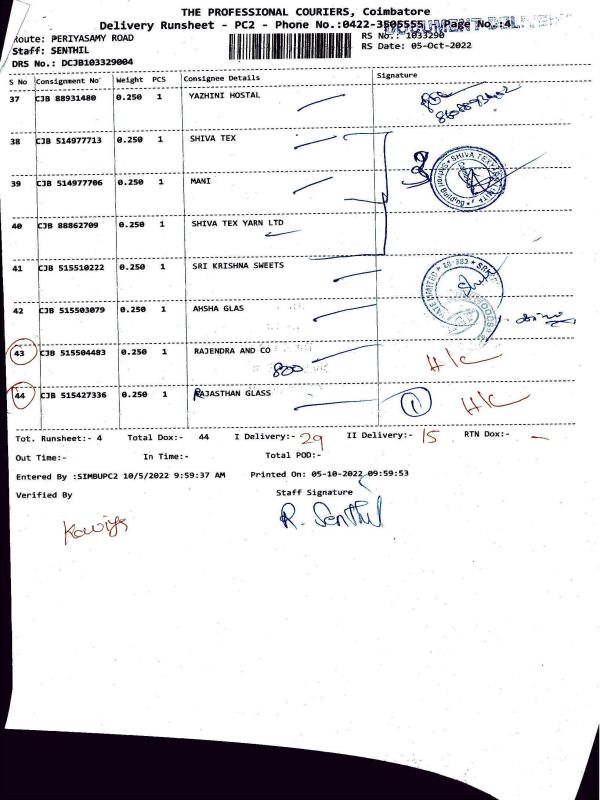 THE PROFESSIONAL COURIERS, Coimbatore
Delivery Runsheet - PC2 - Phone No.:0422-3505555 Page No.:4
Route: PERIYASAMY ROAD
RS No: 1033290
Staff: SENTHIL
RS Date: 05-Oct-2022
DRS No.: DCJB103329004
S No Consignment No Weight PCS Consignee Details Signature
37 CJB 88931480 0.250 1 YAZHINI HOSTAL
38 CJB 514977713 0.250 1 SHIVA TEX
39 CJB 514977706 0.250 1 MANI
40 CJB 88862709 0.250 1 SHIVA TEX YARN LTD
41 CJB 515510222 0.250 1 SRI KRISHNA SWEETS
42 CJB 515503079 0.250 1 AHSHA GLAS
43 CJB 515504483 0.250 1 RAJENDRA AND CO
800 H/C
44 CJB 515427336 0.250 1 RAJASTHAN GLASS 1 H/C
Tot. Runsheet:- 4 Total Dox:- 44 I Delivery:- 29 II Delivery:- 15 RTN Dox:- -
Out Time:- In Time:- Total POD:-
Entered By :SIMBUPC2 10/5/2022 9:59:37 AM Printed On: 05-10-2022 09:59:53
Verified By Staff Signature
R. Senthil